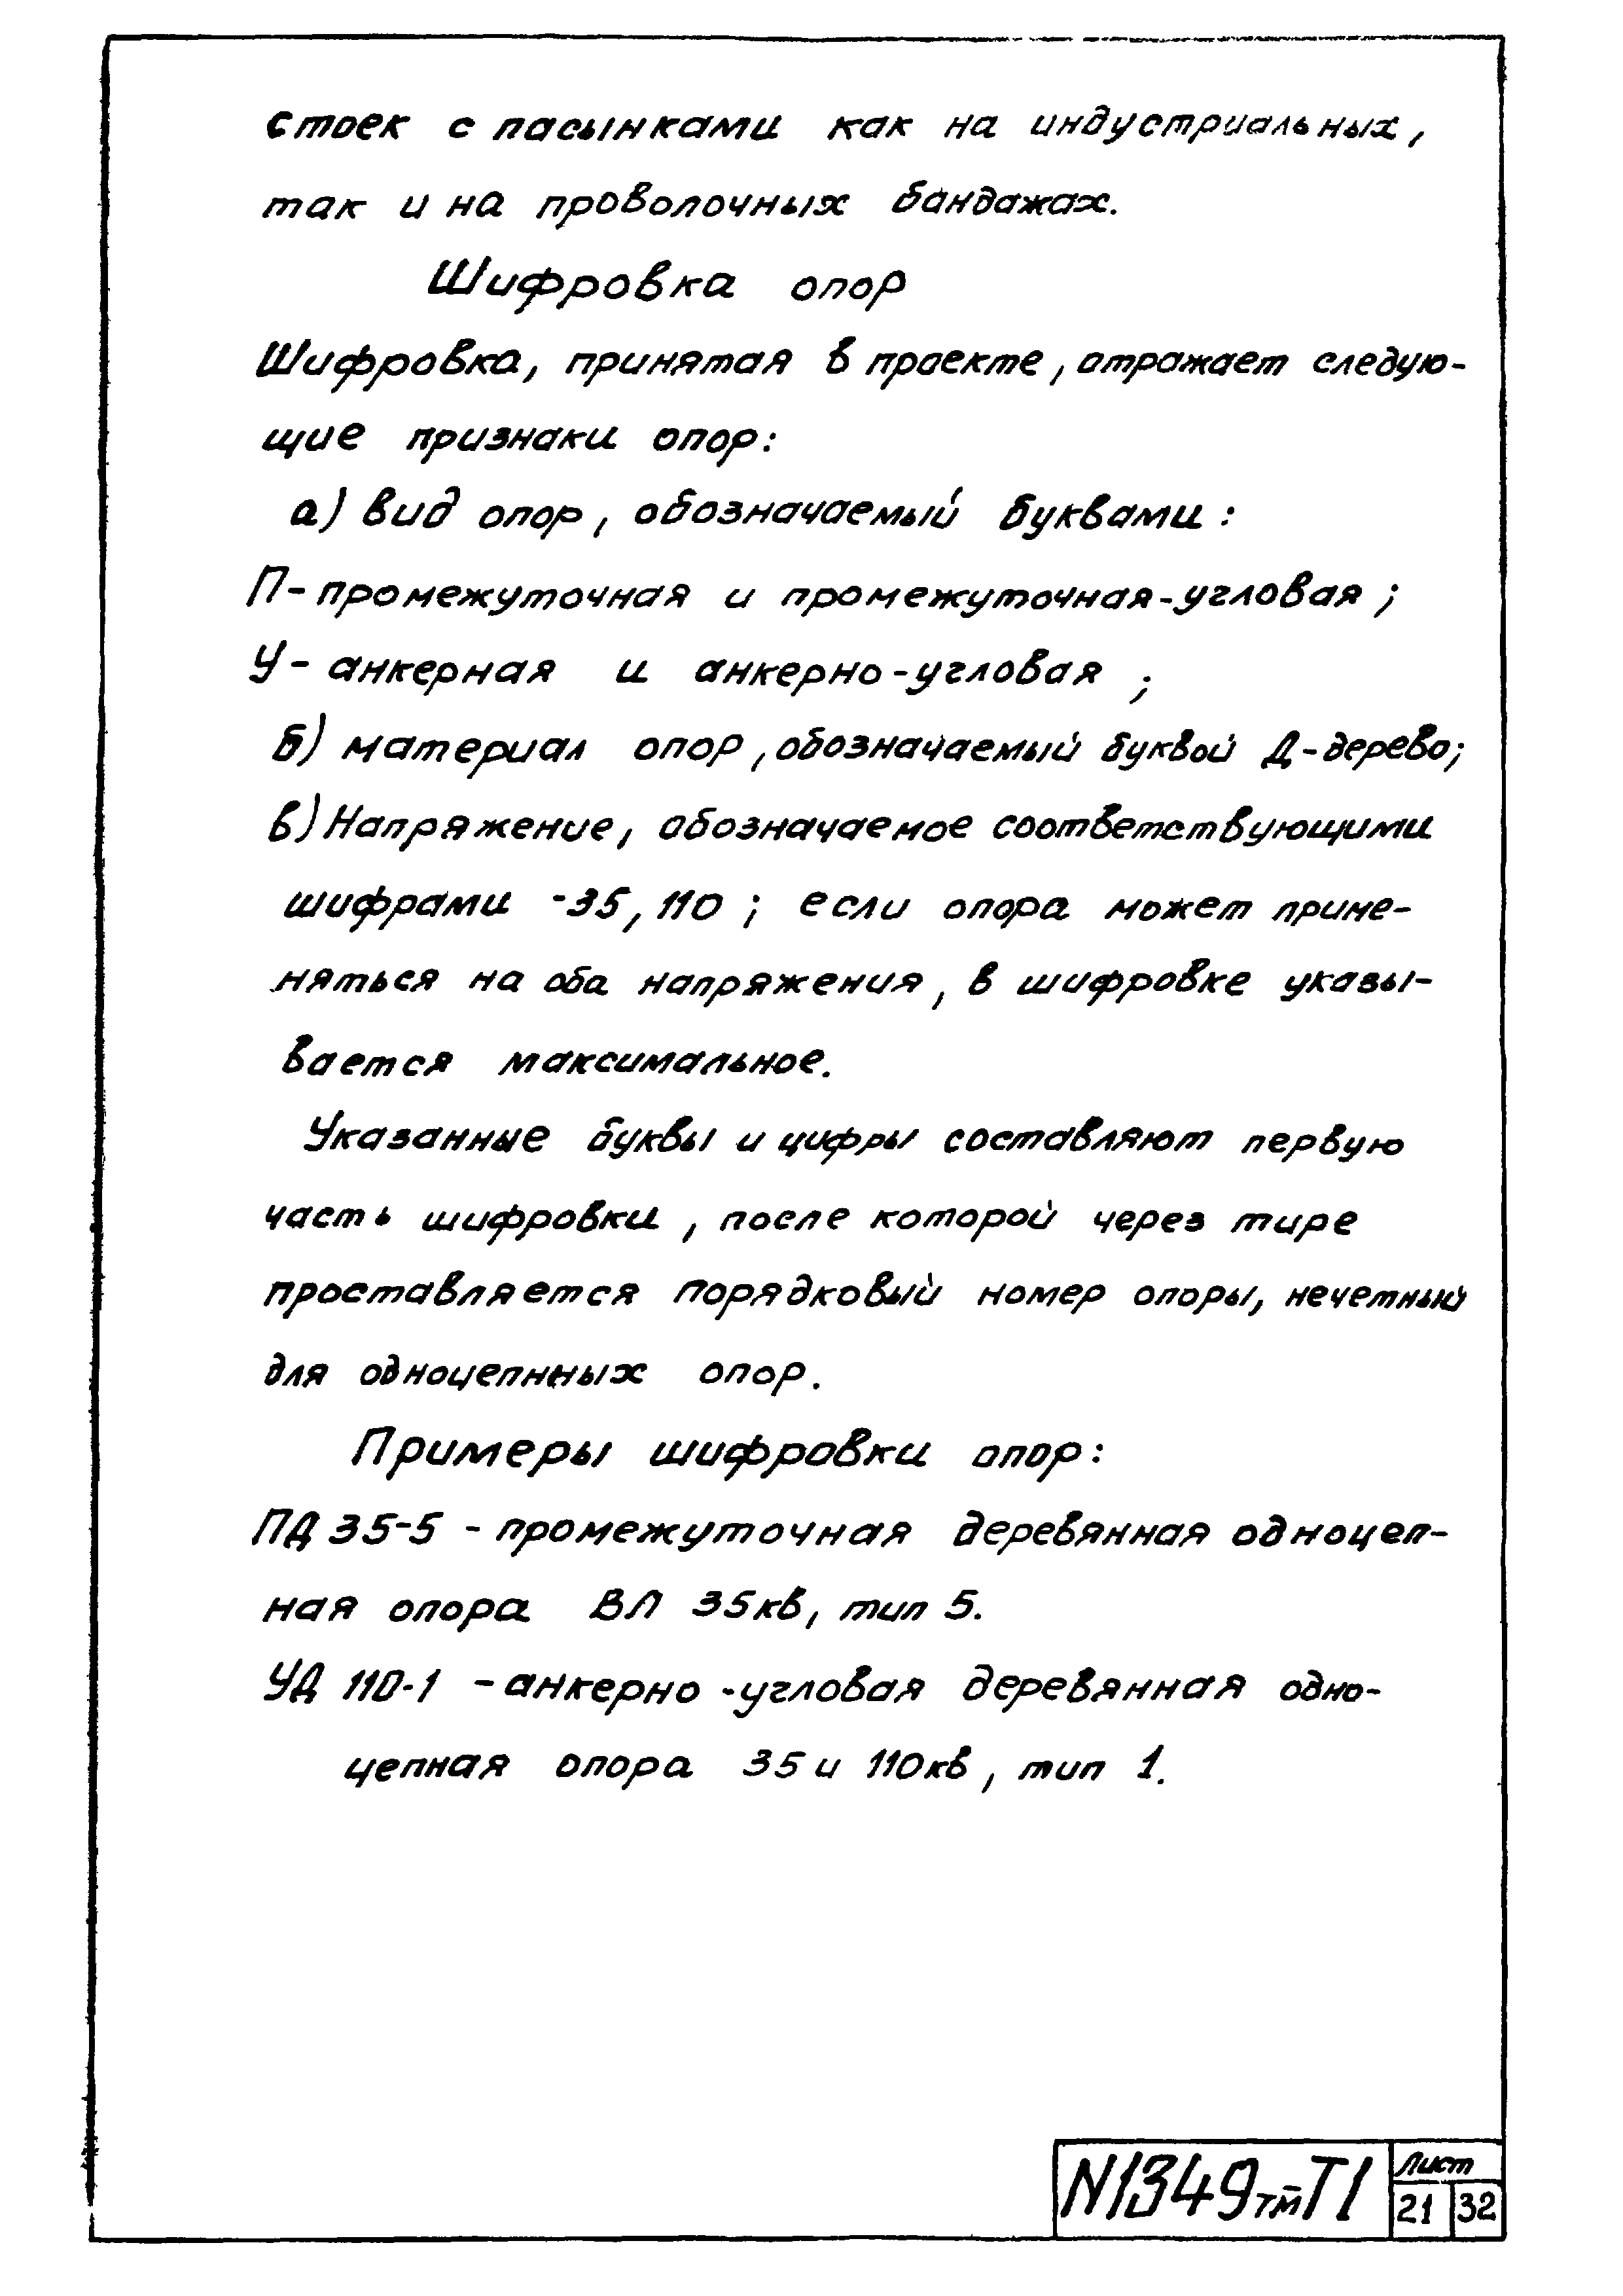 стоек с пасынками как на индустриальных,
так и на проволочных бандажах.
Шифровка опор
Шифровка, принятая в проекте, отражает следую-
щие признаки опор:
а) вид опор, обозначаемый буквами:
П- промежуточная и промежуточная-угловая;
У- анкерная и анкерно-угловая;
б) материал опор, обозначаемый буквой Д-дерево;
в) Напряжение, обозначаемое соответствующими
шифрами -35, 110; если опора может приме-
няться на оба напряжения, в шифровке указы-
вается максимальное.
Указанные буквы и цифры составляют первую
часть шифровки, после которой через тире
проставляется порядковый номер опоры, нечетный
для одноцепнных опор.
Примеры шифровки опор:
ПД 35-5 - промежуточная деревянная одноцеп-
ная опора ВЛ 35кв, тип 5.
УД 110-1 - анкерно-угловая деревянная одно-
цепная опора 35 и 110кв, тип 1.
N1349тм-Т1
Лист
21 32